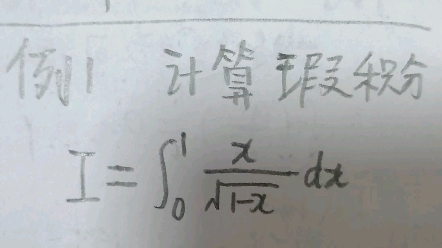 例1 计算瑕积分
I = ∫₀¹ x/√(1-x) dx